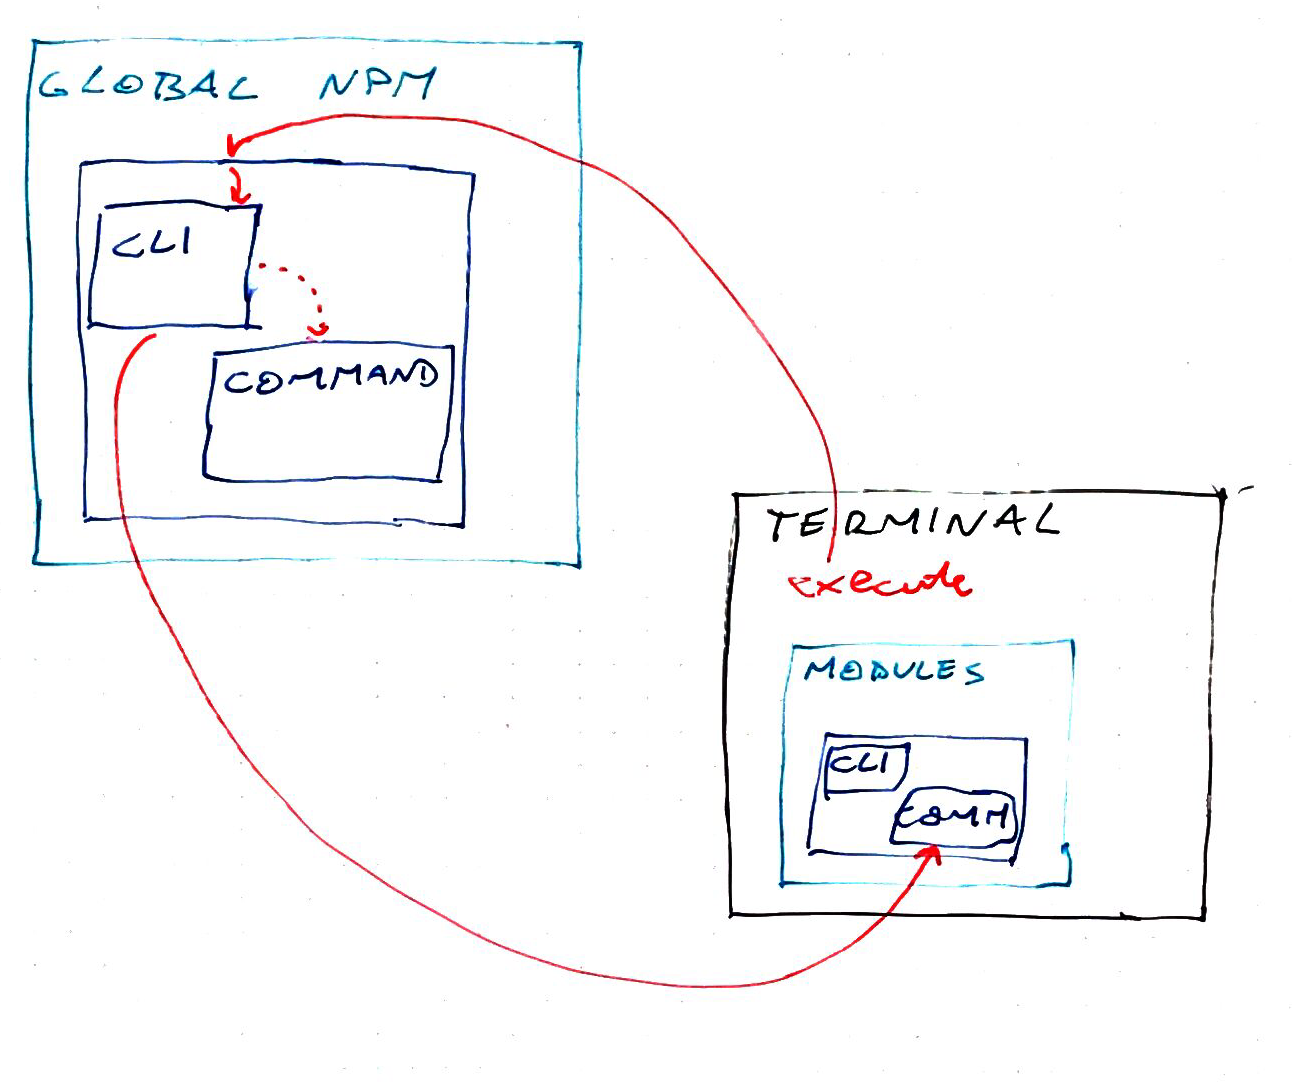 GLOBAL NPM
CLI
COMMAND
TERMINAL
execute
MODULES
CLI
COMM